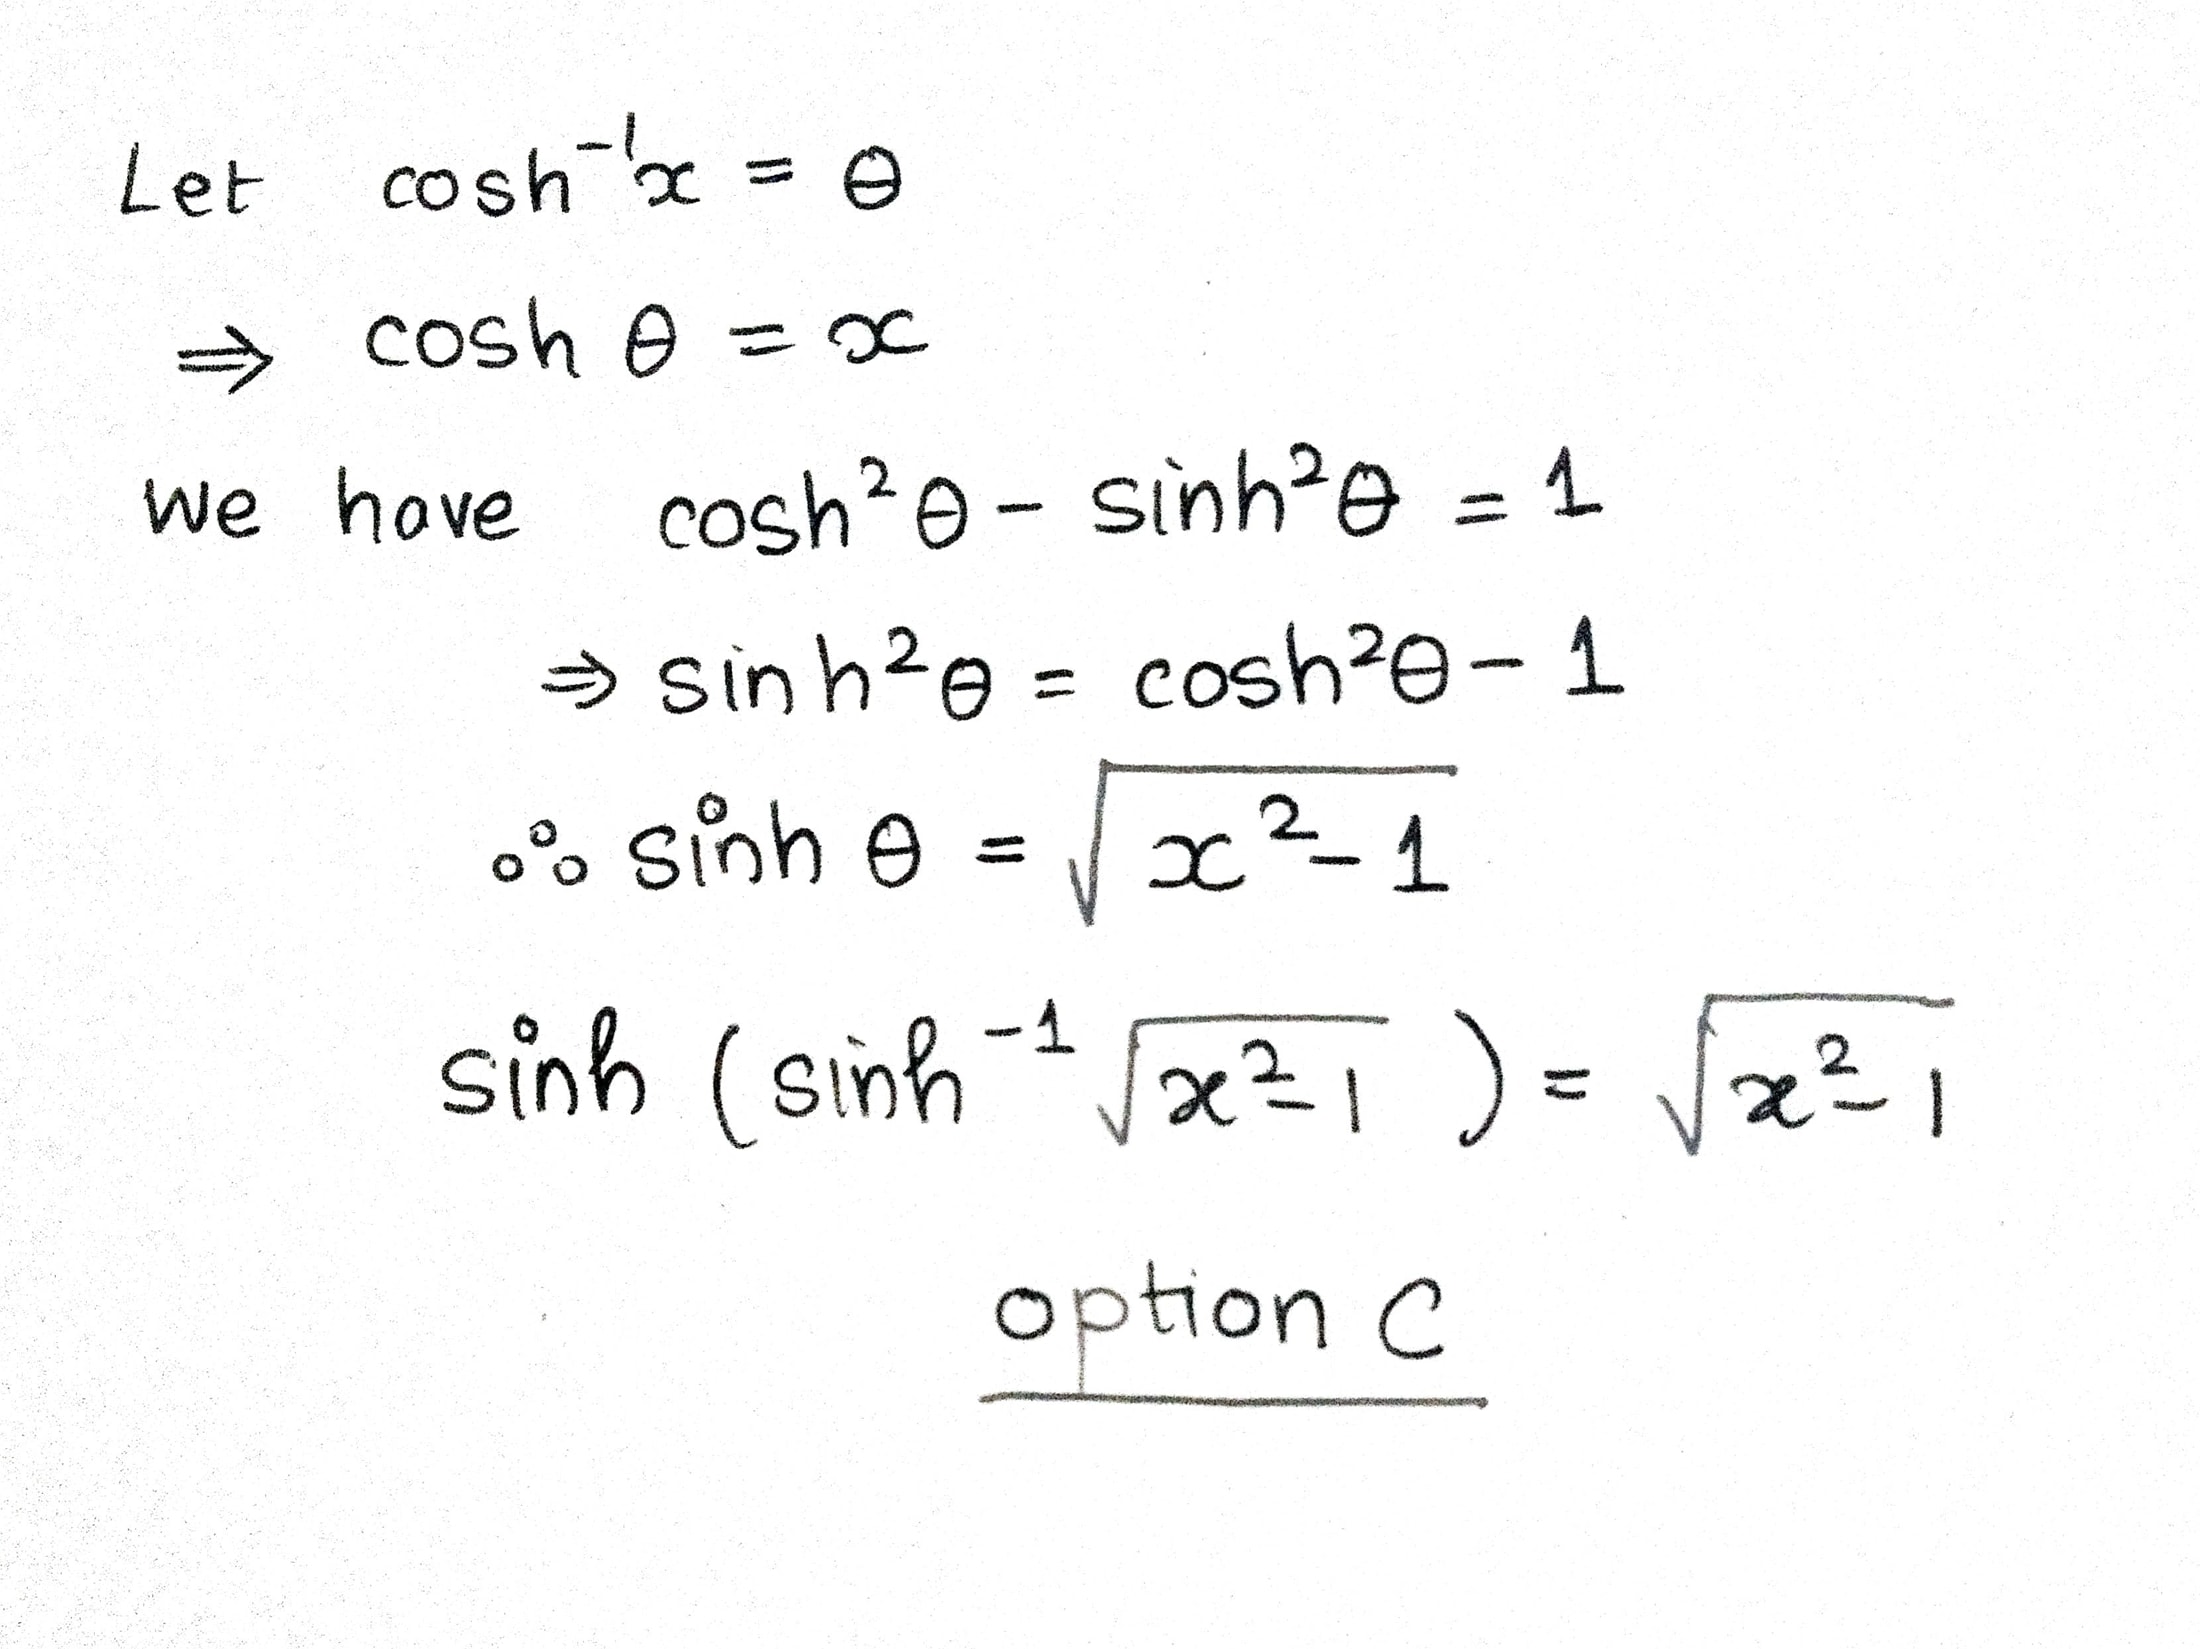 Let cosh⁻¹x = θ
⇒ cosh θ = x
We have cosh²θ - sinh²θ = 1
⇒ sinh²θ = cosh²θ - 1
∴ sinh θ = √(x² - 1)
sinh (sinh⁻¹ √(x² - 1)) = √(x² - 1)
option C